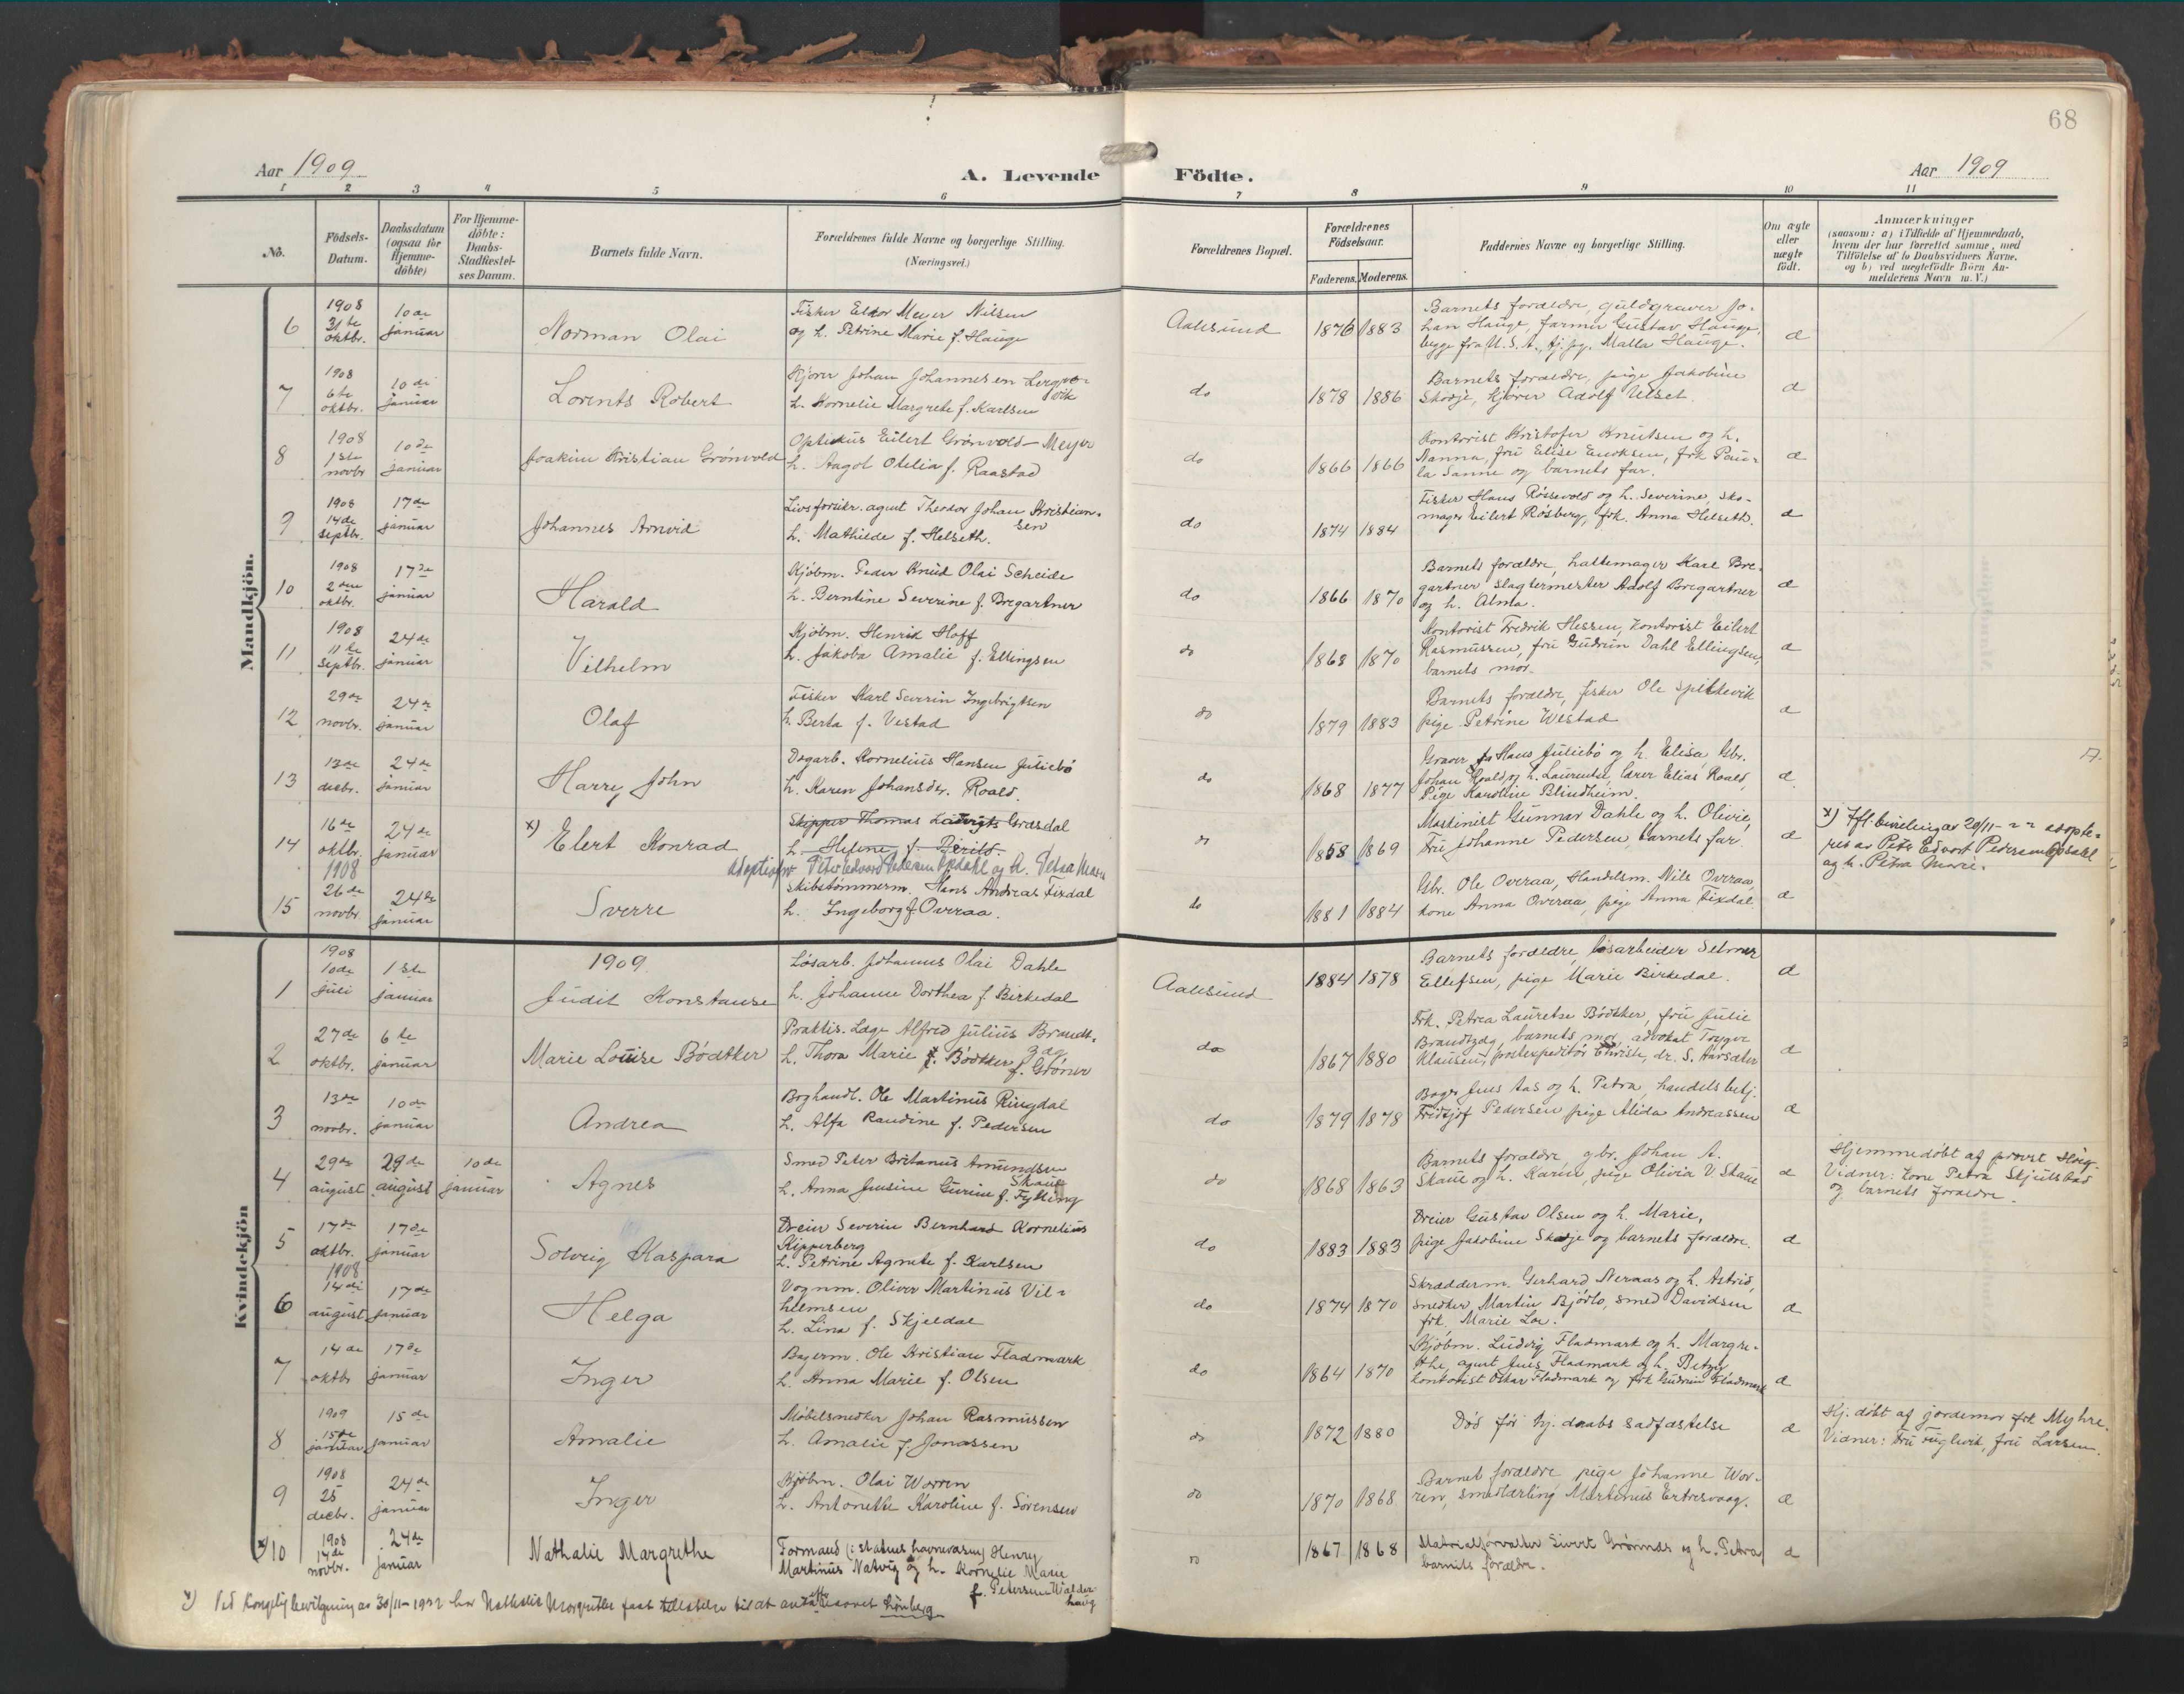 68
Aar 1909
A. Levende Födte.
Aar 1909
1 2 3 4 5 6 7 8 9 10 11
No.
Födsels-Datum.
Daabsdatum (ogsaa for Hjemme-döbte)
For Hjemme-döbte: Daabs-Stadfæstel-ses Datum.
Barnets fulde Navn.
Forældrenes fulde Navne og borgerlige Stilling. (Næringsvei.)
Forældrenes Bopæl.
Forældrenes Födselsaar.
Faderens. Moderens.
Faddernes Navne og borgerlige Stilling.
Om ægte eller uægte født.
Anmærkninger
(saasom: a) i Tilfælde af Hjemmedaab,
hvem der har forrettet samme, med
Tilföielse af to Daabsvidners Navne,
og b) ved uægtefödte Börn An-
melderens Navn m. V.)
Mandkjön.
6 1908 31te oktbr. 10de januar Norman Olai
Fisker Eldor Meyer Nilsen
og h. Petrine Marie f. Hauge
Aalesund 1876 1883
Barnets forældre, guldgraver Jo-
han Hauge, farmer Gustav Hauge,
begge fra U.S.A., tj.pg. Malla Hauge.
7 1908 6te oktbr. 10de januar Lorents Robert
Kjører Johan Johannesen
h. Kornelie Margrete f. Karlsen
do 1878 1886
Barnets forældre, pige Jakobine
Skodje, kjører Adolf Ulset.
8 1908 1ste novbr 10de januar Joakim Kristian Grönvold
Optikus Eilert Grönvold-Meyer
h. Aagot Otilia f. Raastad
do 1866 1866
Kontorist Kristofer Knutsen og h.
Nanna, frü Elise Eriksen, frk Pau-
la Sanne og barnets far.
9 1908 14de septbr. 17de januar Johannes Arnvid
Livsforsikr. agent Theodor Johan Kristian-
sen
h. Mathilde f. Helseth.
do 1874 1884
Fisker Hans Rössevold og h. Severine, sko-
mager Eilert Rösberg, frk. Anna Helseth.
10 1908 2den oktbr. 17de januar Harald
Kjöbm. Peder Knud Olai Scheide
h. Berntine Severine f. Bregartner
do 1866 1870
Barnets forældre, hattemager Karl Bre-
gartner slagtermester Adolf Bregartner
og h. Alma.
11 1908 11te septbr. 24de januar Vilhelm
Kjöbm. Henrik Hoff
h. Jakoba Amalie f. Ellingsen
do 1868 1870
Kontorist Fredrik Hessen, kontorist Eilert
Rasmussen, frü Gudrun Dahl Ellingsen,
barnets mor.
12 29de novbr. 24de januar Olaf
Fisker Karl Severin Ingebrigtsen
h. Berta f. Vestad
do 1879 1883
Barnets forældre, fisker Ole Spillevik
pige Petrine Westad
13 13de decbr. 24de januar Harry John
Dagarb. Kornelius Hansen Juliebö
h. Karen Johansdr. Roald.
do 1868 1877
Graver Hans Juliebö og h. Elisa, Gbr.
Johan Roald og h. Laurentse, lærer Elias Roald,
Pige Karoline Blindheim.
14 16de oktbr. 1908 24de januar x) Elert Konrad
Skipper Thomas Ludvigts Græsdal
h. Helene f. Berild.
do 1858 1869
Maskinist Gunnar Dahle og h. Olivie,
Frü Johanne Pedersen, barnets far.
og h. Petra Marie.
15 26de novbr. 24de januar Sverre
Skibstömmerm. Hans Andreas Fixdal
h. Ingeborg f. Overaa.
do 1881 1884
Gbr. Ole Overaa, Handelsm. Nils Overaa,
kone Anna Overaa, pige Anna Fixdal.
Kvindekjön
1909
1 1908 10de juli 1ste januar Judit Konstanse
Lösarb. Johannes Olai Dahle
h. Johanne Dorthea f. Birkedal
Aalesund 1884 1878
Barnets forældre, lösarbeider Selmer
Ellefsen, pige Marie Birkedal.
2 27de oktbr. 6te januar Marie Louise Bödtker
Praktis. Læge Alfred Julius Brandt-
zæg
h. Thora Marie f. Bödtker f. Gröner
do 1867 1880
Frk. Petrea Lauretse Bödtker, frü Julie
Brandtzæg, barnets mor, advokat Trygve
Klausen, postexpeditör Christie, dr. S. Aarsæter
3 13de novbr. 10de januar Andrea
Boghandl. Ole Martinus Ringdal
h. Alfa Randine f. Pedersen
do 1879 1878
Bager Jens Aas og h. Petra, handelsbetj.
Fridtjof Pedersen pige Alida Andreassen
4 29de august 29de august 10de januar Agnes
Smed Peter Britanus Amundsen
Skaue
h. Anna Jensine Gurine f. Fylling
do 1868 1863
Barnets forældre, gbr. Johan A.
Skaue og h. Karen, pige Olivia V. Skaue
Hjemmedöbt af provst Höeg.
Vidner: kone Petra Skjelstad
og barnets forældre.
5 17de oktbr. 1908 17de januar Solveig Kaspara
Dreier Severin Bernhard Kornelius
Kipperberg
h. Petrine Agnete f. Karlsen
do 1883 1883
Dreier Gustav Olsen og h. Marie,
pige Jakobine Skodje og barnets forældre.
6 14de august 17de januar Helga
Vognm. Oliver Martinus Vil-
helmsen
h. Lina f. Skjeldal
do 1874 1870
Skrædderm. Gerhard Neraas og h. Astrid,
snedker Martin Bjórlo, smed Davidsen
frk. Marie Loe.
7 14de oktbr 17de januar Inger
Bagerm. Ole Kristian Fladmark
h. Anna Marie f. Olsen
do 1864 1870
Kjöbm. Ludvig Fladmark og h. Margre-
the, agent Jens Fladmark og h. Betzy
kontorist Oskar Fladmark og frk Gudrun Fladmark
8 1909 15de januar 15de januar Amalie
Möbelsnedker Johan Rasmussen
h. Amalie f. Jonassen
do 1872 1880
Död för hj. daabs stadfæstelse
Hj. döbt af jordemor frk Myhre.
Vidner: Frü Fuglevik, frü Larsen.
9 1908 25 decbr. 24de januar Inger
Kjöbm. Olai Worren
h. Antonette Karoline f. Sörensen
do 1870 1868
Barnet forældre, pige Johanne Wor-
ren, smedlærling Martinus Ertresvaag.
x) 10 1908 14de novbr. 24de januar Nathalie Margrethe
Formand (: statens havnevæsen) Henry
Martinus Natvig og h. Kornelie Marie
f. Petersen Walder-
haug
do 1867 1868
Materialforvalter Sivert Grönnæs og h. Petra
barnets forældre.
x) Ved Kongelig bevilgning av 30/11-1922 har Nathalie Margrethe faat tilladelse til at anta navnet Lönberg